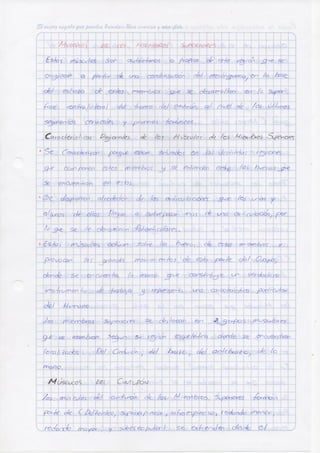 Músculos de los Miembros Superiores
Estos músculos son autóctonos o propios de esta región que se
originan a partir de una condensación del mesénquima, en la base
del esbozo de estos miembros que se desarrollan en la super-
ficie ventrolateral del tronco del embrión al nivel de los últimos
segmentos cervicales y primeros torácicos.
Características Regionales de los Músculos de los Miembros Superiores
• Se Caracterizan porque están situados en las distintas regiones
que componen estos miembros y se extienden entre los huesos que
se encuentran en estos.
• Se disponen alrededor de las articulaciones que los unen y
algunos de ellos llegan a sobrepasar más de una articulación, por
lo que se le denominan
• Estos músculos actúan sobre los huesos de estos miembros y
provocan los grandes movimientos de esta parte del Cuerpo,
donde se encuentra la mano que constituye un verdadero
instrumento de trabajo y representa una característica particular
del Humano.
Los miembros superiores se dividen en 2 grupos musculares
que se nombran según su región esquelética donde se encuentran
localizados. Del Cinturón, del brazo, del antebrazo, de la
mano.
Músculos del Cinturón
Los músculos del cinturón de los Miembros Superiores forman
parte de (Deltoides, supraespinoso, infraespinoso, redondo menor,
redondo mayor y subescapular) se extienden desde el